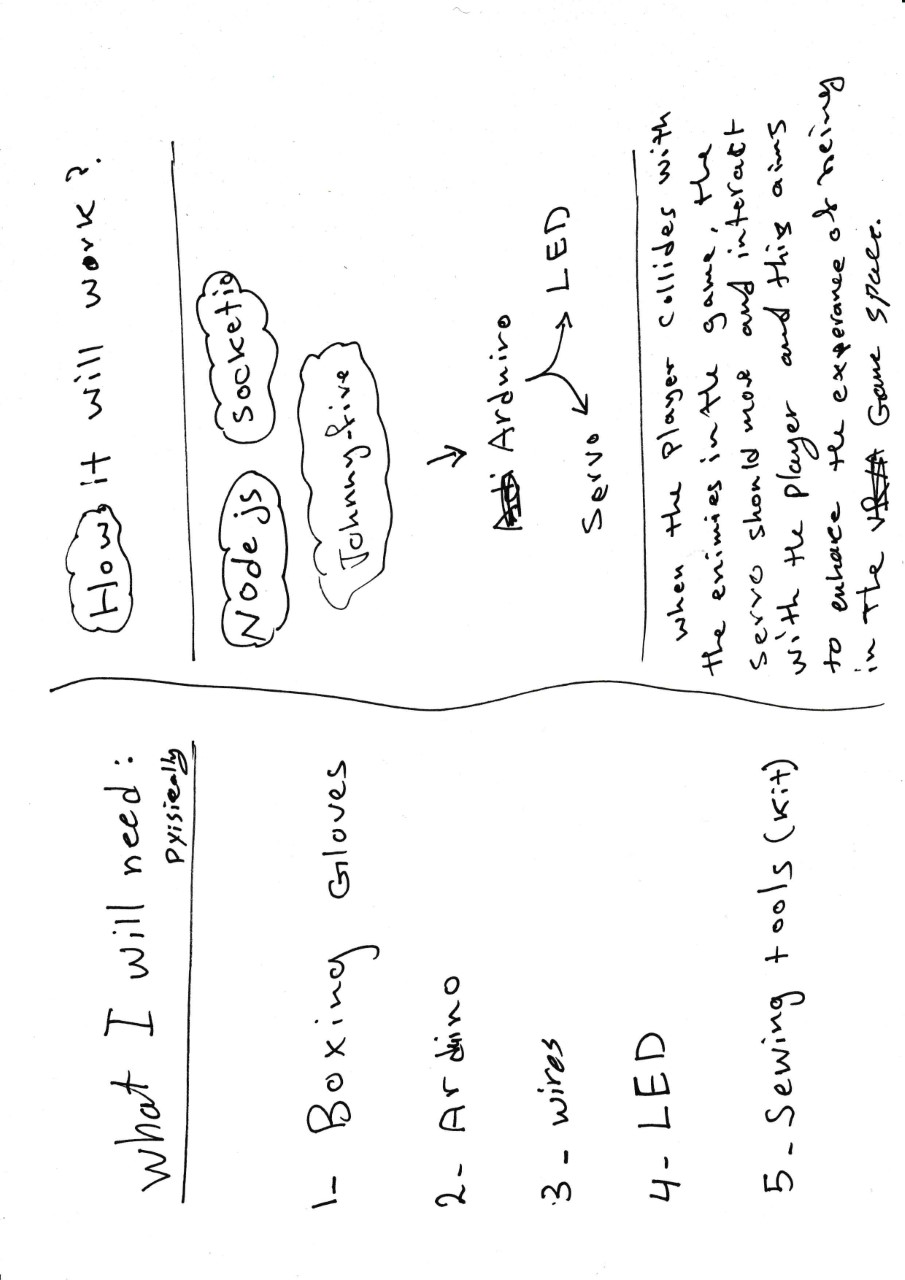 What I will need:
Pyisically
1- Boxing Gloves
2- Arduino
3- wires
4- LED
5- Sewing tools (Kit)
How it will work?
Node js socketio
Johnny-five
Arduino
LED
Servo
when the Player collides with
the enimies in the game, the
servo should move and interact
with the player and this aims
to enhace the experance of being
in the Game space.